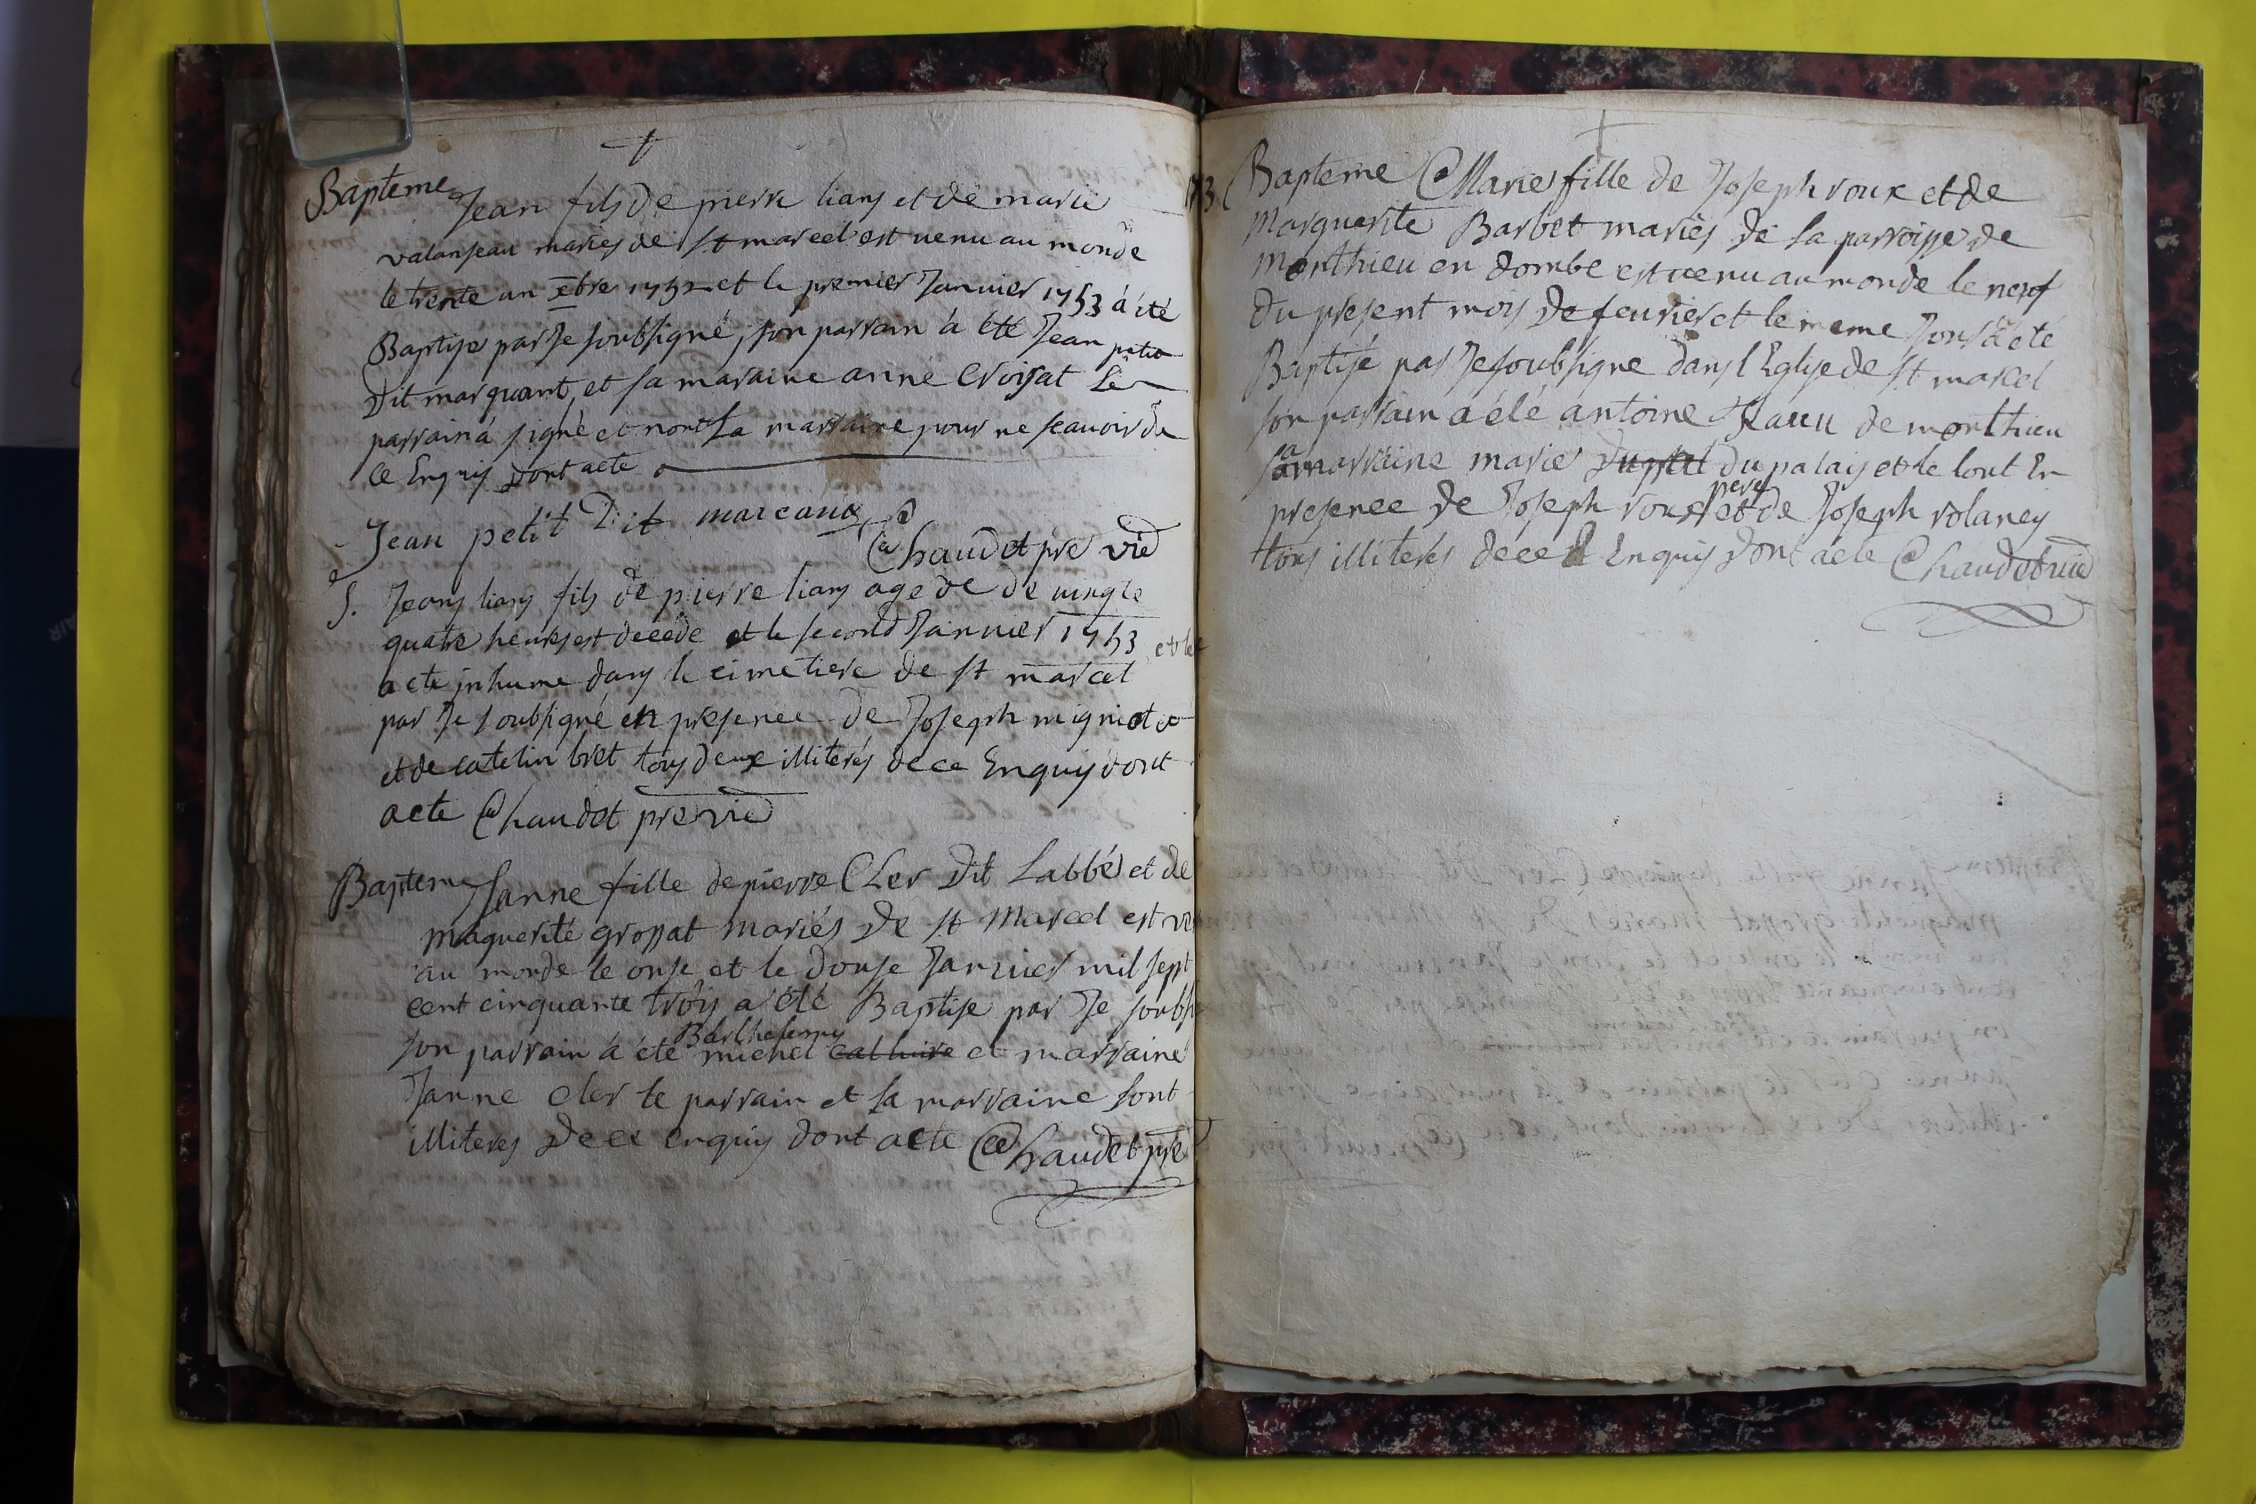 Bapteme Jean fils de pierre liars et de marie
valanseau mariés de st marcel est venu au monde
le trente un xbre 1752 et le premier Janvier 1753 à été
Baptise par Je soubsigné, son parrain à été Jean petit
Dit marquant, et sa maraine anne Croisat Le
parrain à signé et nont la marraine pour ne scauoir de
ce Enquis Dont acte
Jean petit Dit marcand
Chaudet pre vic
S. Jean liars fils de pierre liars age de de uingte
quatre heures est decede et le second Januier 1753 et le
a ete inhume dans le cimetiere de st marcel
par Je soubsigné en presence de Joseph migniot
et de catelin bret tous deux illiterés de ce Enquis dont
acte Chaudet pre vic
Bapteme Janne fille de pierre Cler Dit Labbé et de
maguerite grossat mariés De st Marcel est ve
au monde le onse et le douse Januier mil sept
cent cinquante trois a été Baptise par Je soubs
Barthelemy
son parrain à été michel cathuire et marraine
Janne cler le parrain et la marraine sont
illiteres De ce enquis dont acte Chaudet pre
Bapteme Marie fille de Joseph roux et de
Marguerite Barbet mariés de la parroisse de
monthieu en dombe est uenu au monde le neuf
du present mois de feurier et le meme Jour à été
Baptisé par Je soubsigne dans l Eglise de st marcel
son parrain a été antoine de monthieu
sa marraine marie du palais et le tout En
pere
presence de Joseph roux et de Joseph rolancy
tous illiterés de ce Enquis Dont acte Chaudet vic